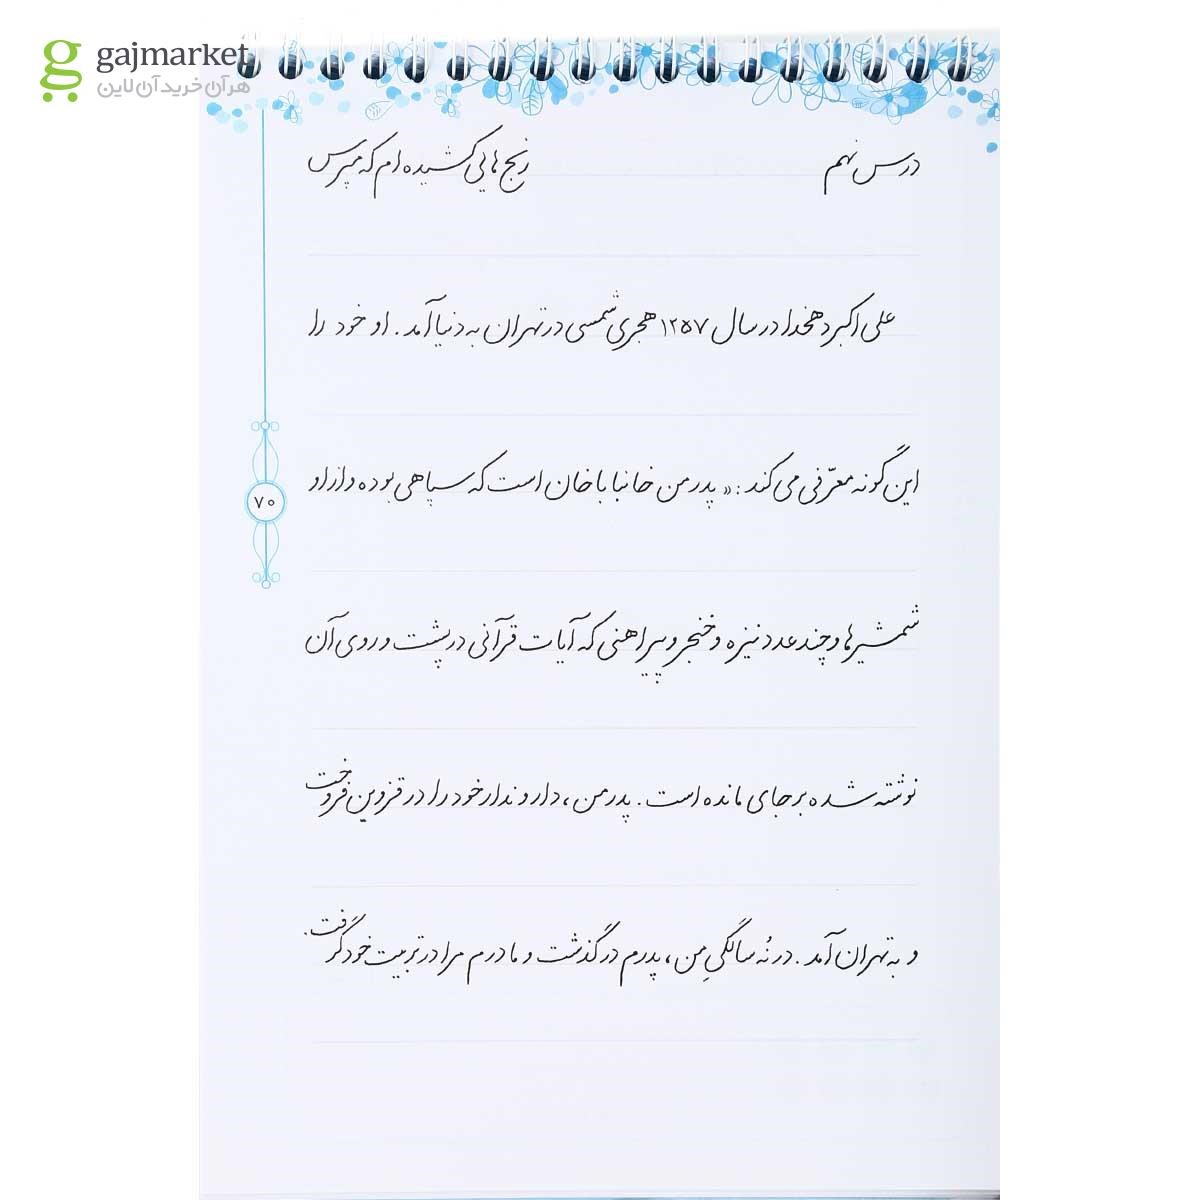 gajmarket
هر آن خرید آن لاین
درس نهم رنج هایی کشیده ام که مپرس
علی اکبر دهخدا در سال ۱۲۵۷ هجری شمسی در تهران به دنیا آمد. او خود را
این گونه معرّفی می کند: « پدر من خانباباخان است که سپاهی بوده و از او
۷۰
شمشیرها و چند عدد نیزه و خنجر و پیراهنی که آیات قرآنی در پشت و روی آن
نوشته شده بر جای مانده است. پدر من، دار و ندار خود را در قزوین فروخت
و به تهران آمد. در نُه سالگیِ من، پدرم درگذشت و مادرم مرا در تربیت خود گرفت.